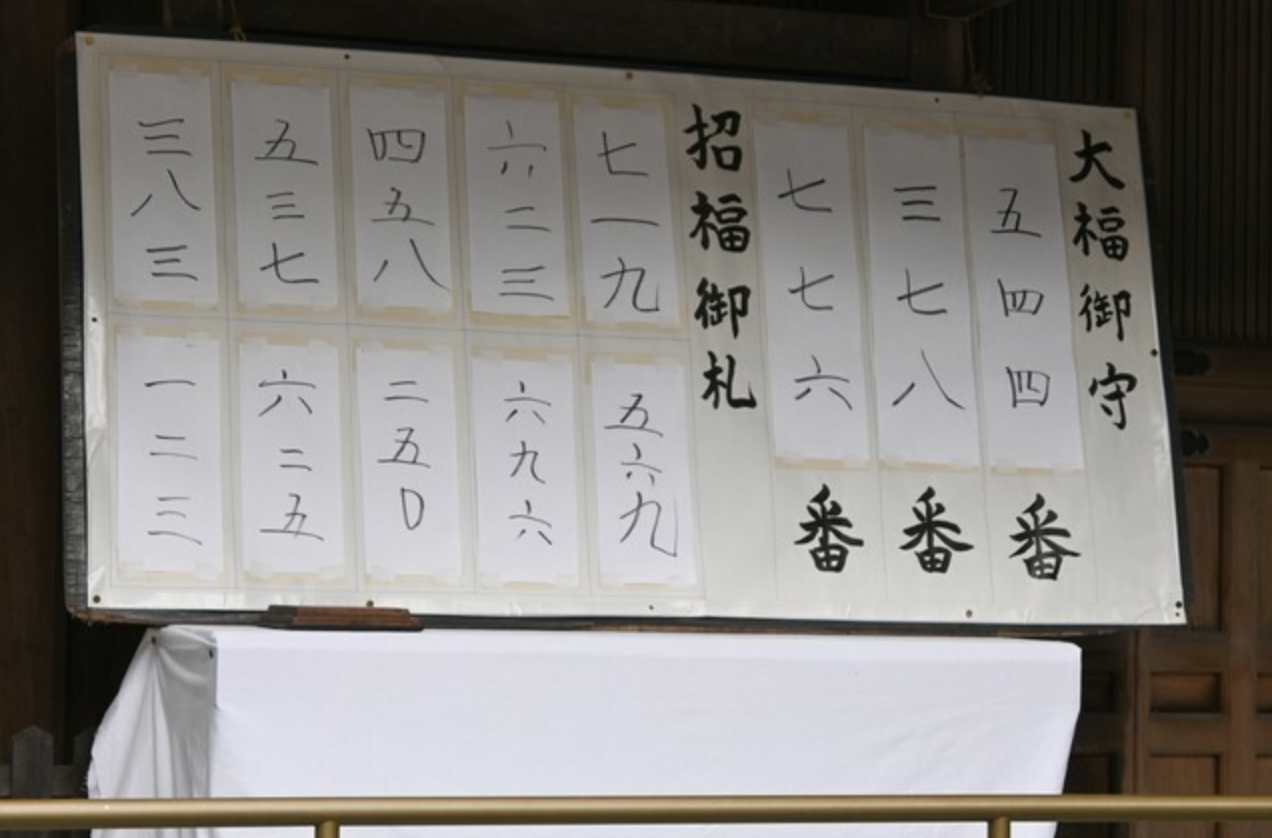 大福御守
五四四番
三七八番
七七六番
招福御札
七一九
五六九
六二三
六九六
四五八
二五0
五三七
六二五
三八三
一二三